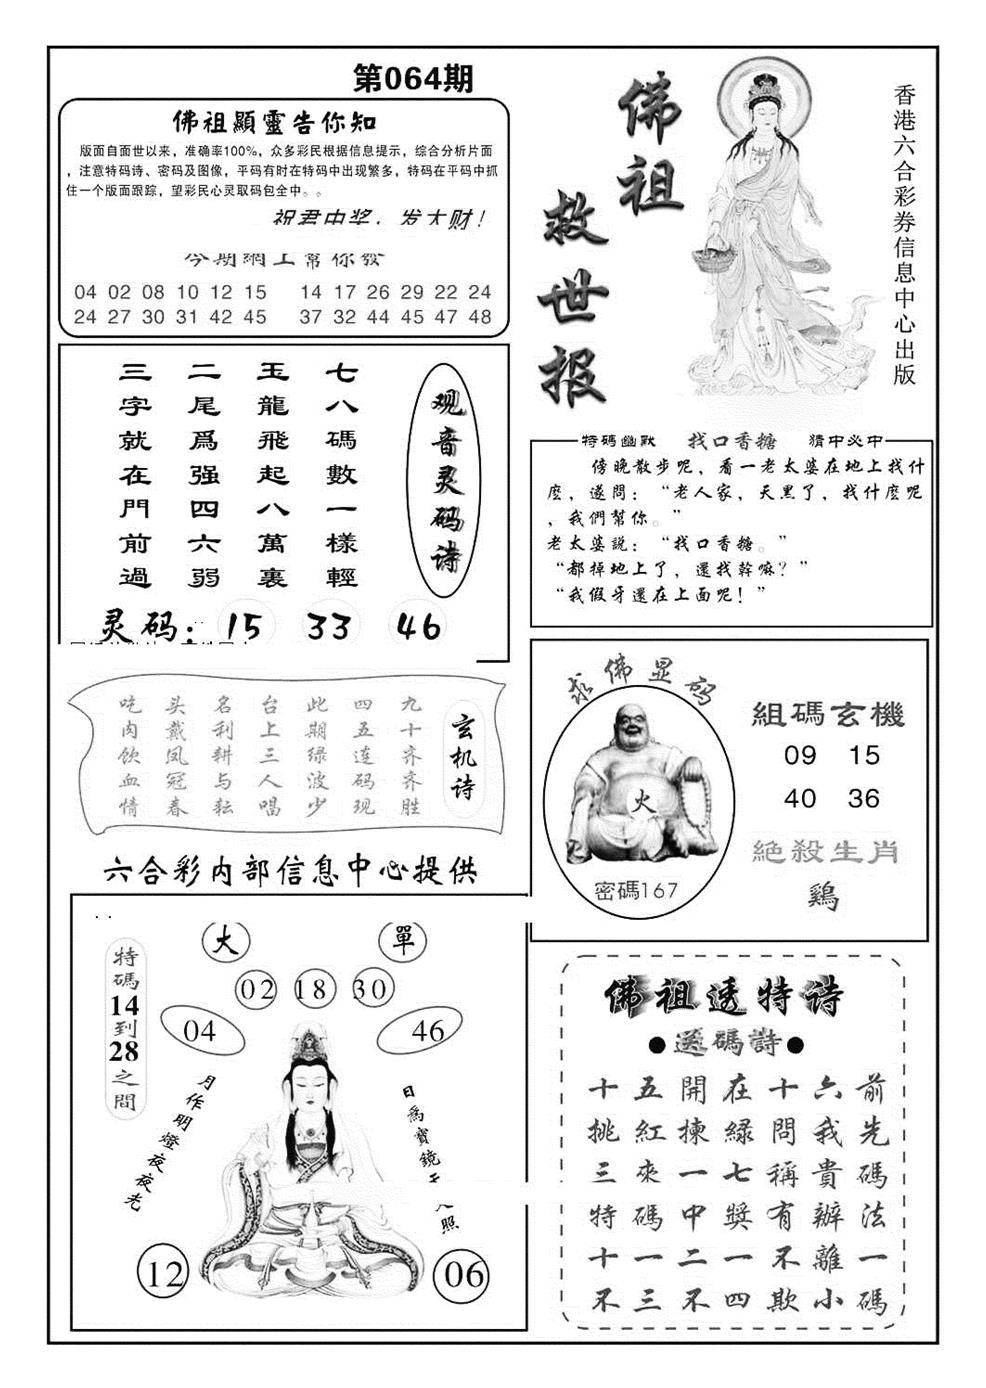 第064期
佛祖顯靈告你知
版面自面世以来，准确率100%，众多彩民根据信息提示，综合分析片面
，注意特码诗、密码及图像，平码有时在特码中出现繁多，特码在平码中抓
住一个版面跟踪，望彩民心灵取码包全中。。
祝君中奖，发大财！
今期網上幫你發
04 02 08 10 12 15 14 17 26 29 22 24
24 27 30 31 42 45 37 32 44 45 47 48
佛祖
救世报
香港六合彩券信息中心出版
观音灵码诗
七八碼數一樣輕
玉龍飛起八萬裏
二尾爲强四六弱
三字就在門前過
灵码：15 33 46
特碼幽默 找口香糖 猜中必中
傍晚散步呢，看一老太婆在地上找什
麽，遂問：“老人家，天黑了，找什麽呢
，我們幫你。”
老太婆説：“找口香糖。”
“都掉地上了，還找幹嘛？”
“我假牙還在上面呢！”
玄机诗
九十齐齐胜
四五连码现
此期绿波少
台上三人唱
名利耕与耘
头戴凤冠春
吃肉饮血情
六合彩内部信息中心提供
求佛显码
火
密碼167
組碼玄機
09 15
40 36
絶殺生肖
鷄
大 單
02 18 30
04 46
特碼14到28之間
月作明燈夜夜光
日爲寶鏡
照
12 06
佛祖透特诗
送碼詩
前先碼法一碼
六我貴辦離小
十問稱有不欺
在緑七獎一四
開揀一中二不
五紅來碼一三
十挑三特十不